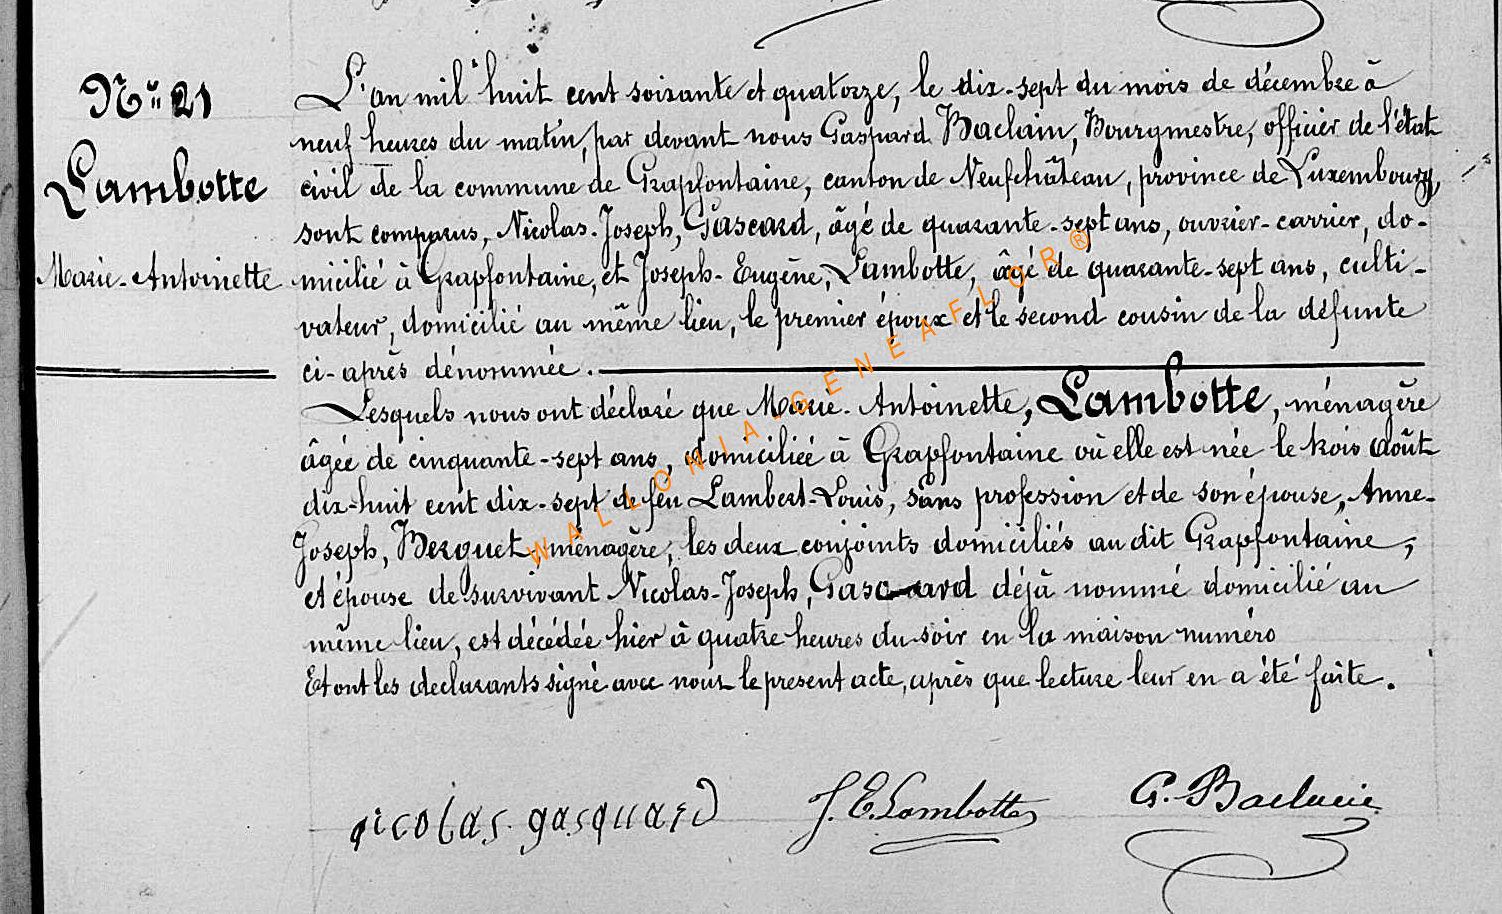 N° 21
Lambotte
Marie-Antoinette
L'an mil huit cent soixante et quatorze, le dix-sept du mois de décembre à
neuf heures du matin, par devant nous Gaspard Baclain, Bourgmestre, officier de l'état
civil de la commune de Grapfontaine, canton de Neufchâteau, province de Luxembourg,
sont comparus, Nicolas-Joseph, Gascard, âgé de quarante-sept ans, ouvrier-carrier, do-
micilié à Grapfontaine, et Joseph-Eugène, Lambotte, âgé de quarante-sept ans, culti-
vateur, domicilié au même lieu, le premier époux et le second cousin de la défunte
ci-après dénommée.
Lesquels nous ont déclaré que Marie-Antoinette, Lambotte, ménagère
âgée de cinquante-sept ans, domiciliée à Grapfontaine où elle est née le trois Août
dix-huit cent dix-sept de feu Lambert-Louis, sans profession et de son épouse, Anne-
Joseph, Berquet, ménagère, les deux conjoints domiciliés au dit Grapfontaine,
et épouse de survivant Nicolas-Joseph, Gascard déjà nommé domicilié au
même lieu, est décédée hier à quatre heures du soir en la maison numéro
Et ont les declarants signé avec nous le present acte, après que lecture leur en a été faite.
nicolas gasquard J. E. Lambotte G. Baclain
WALLONIA-GENEAFLOR®